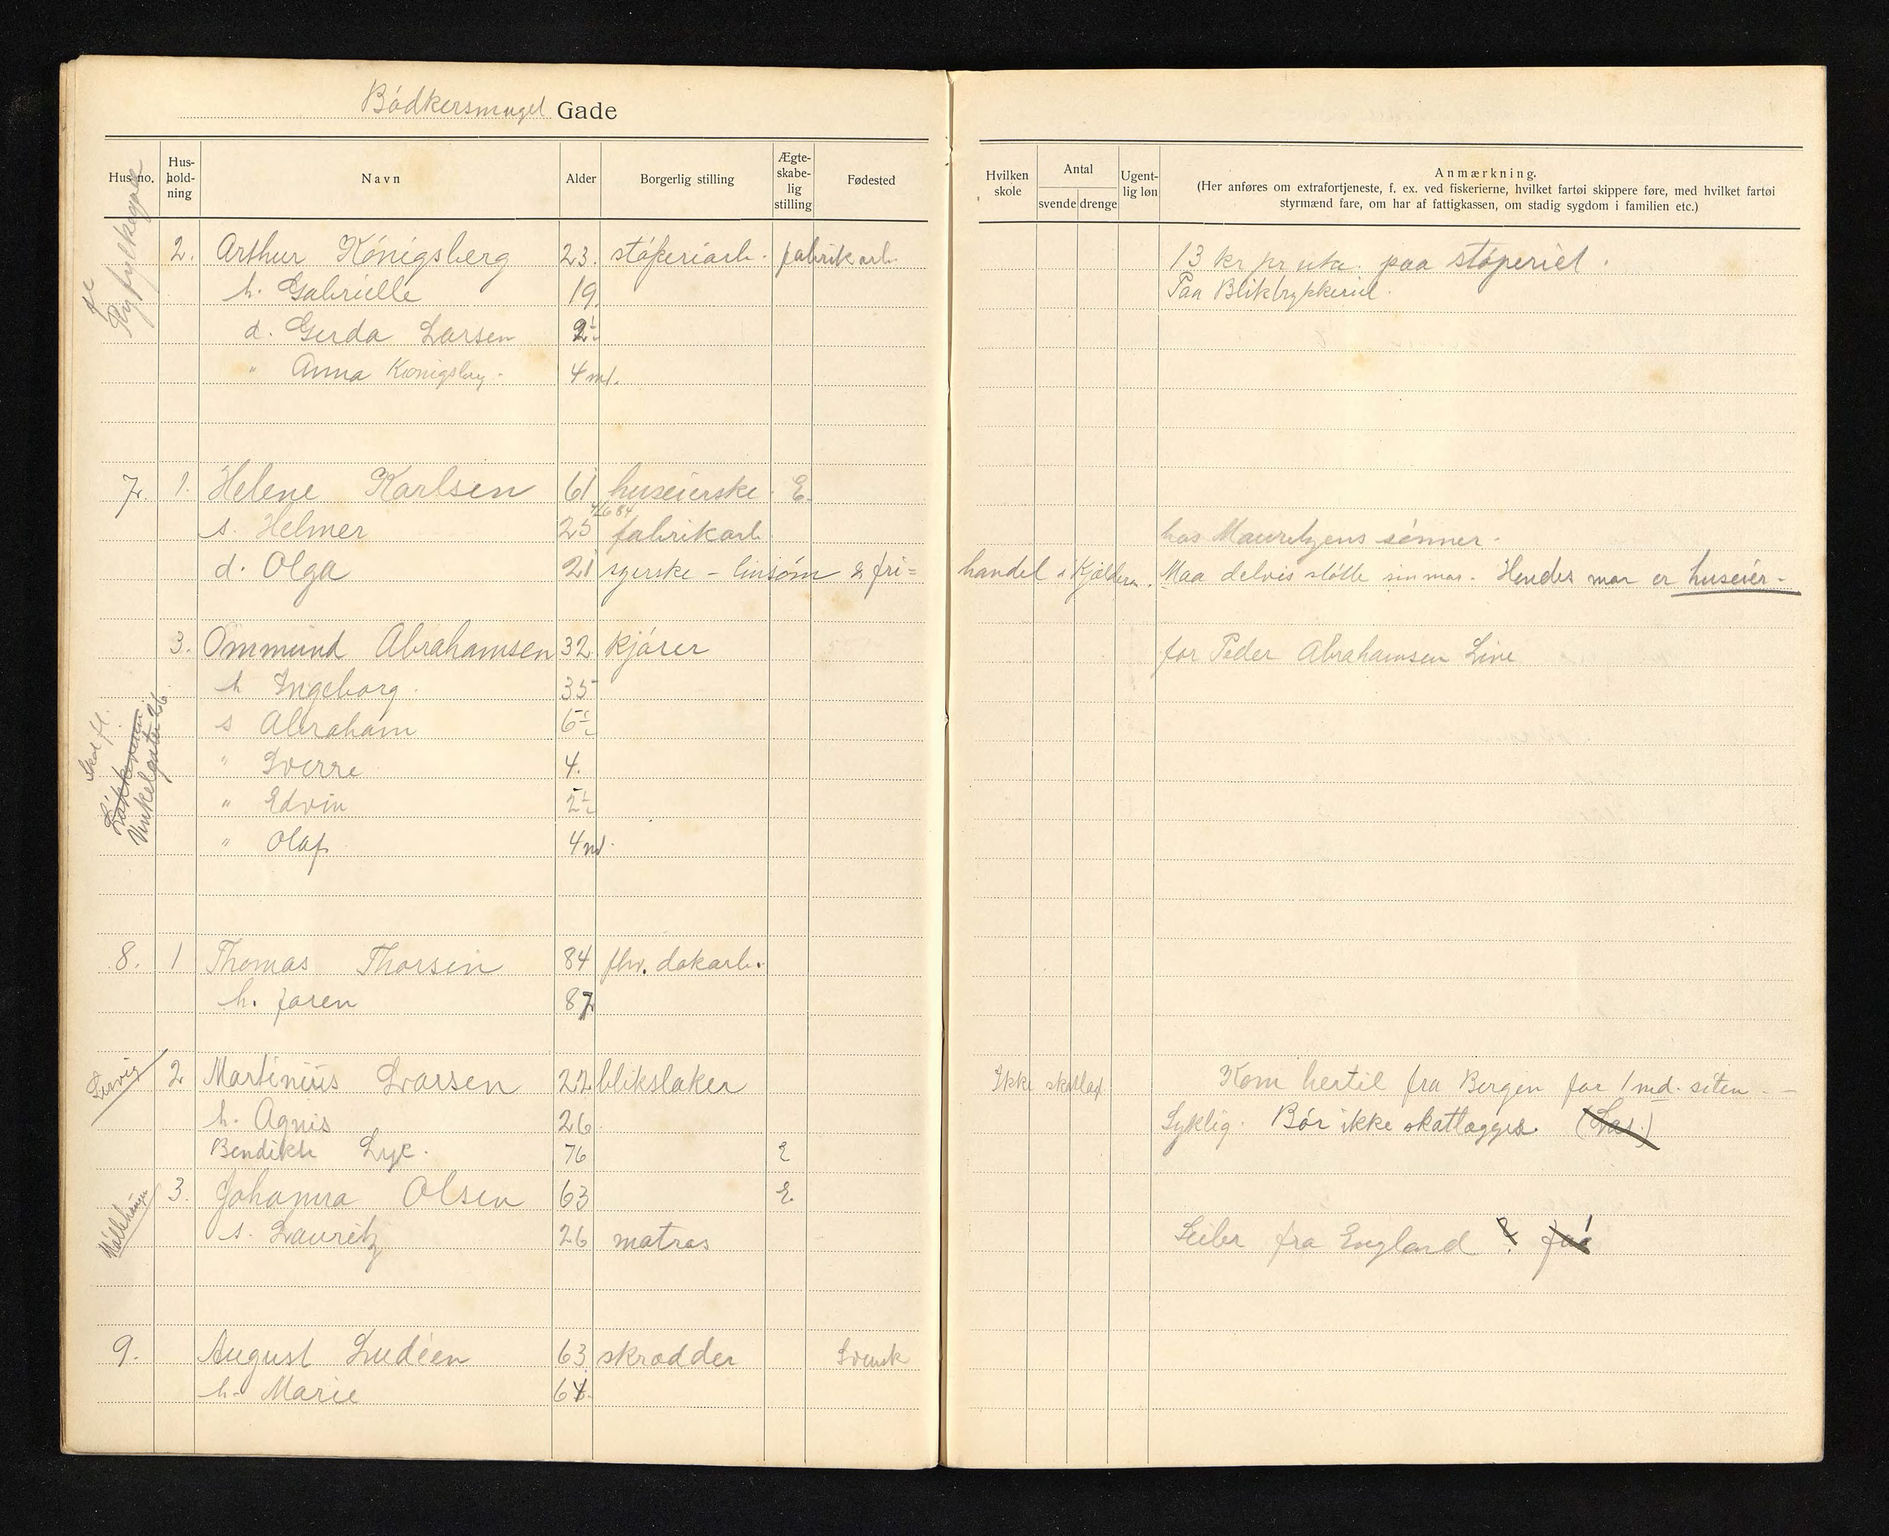 Bødkersmuget Gade
Hus no. Hus-holdning Navn Alder Borgerlig stilling Ægteskabelig stilling Fødested Hvilken skole Antal svende drenge Ugentlig løn Anmærkning.
(Her anføres om extrafortjeneste, f. ex. ved fiskerierne, hvilket fartøi skippere føre, med hvilket fartøi
styrmænd fare, om har af fattigkassen, om stadig sygdom i familien etc.)
2. Arthur Königsberg 23. støperiarb. fabrikarb. 13 kr pr uke. paa støperiet.
h. Gabrielle 19 Paa Bliktrykkeriet.
d. Gerda Larsen 2½
" Anna Königsberg. 4 md.
7. 1. Helene Karlsen 61 huseierske. E.
s. Helmer 25 fabrikarb hos Mauritzens sønner.
d. Olga 21 syerske - linsøm & fri= handel i Kjælderen. Maa delvis støtte sin mor. Hendes mor er huseier -
3. Ommund Abrahamsen 32 kjører for Peder Abrahamsen Line
h Ingeborg. 35
s Abraham 6½
" Sverre 4.
" Edvin 2½
" Olaf 4 md.
Vinkelgaten 26
8. 1 Thomas Thorsen 84 fhv. dokarb.
h. Joren 87
2 Martinius Larsen 22 blikslaker Ikke skatlagt Kom hertil fra Bergen for 1 md. siden -
h. Agnis 26 Syklig. Bør ikke skatlægges.
Bendikte Lye. 76 E
3. Johanna Olsen 63 E.
s. Lauritz 26 matros Seiler fra England ?
9. August Ludéen 63 skrædder Svensk
h. Marie 64